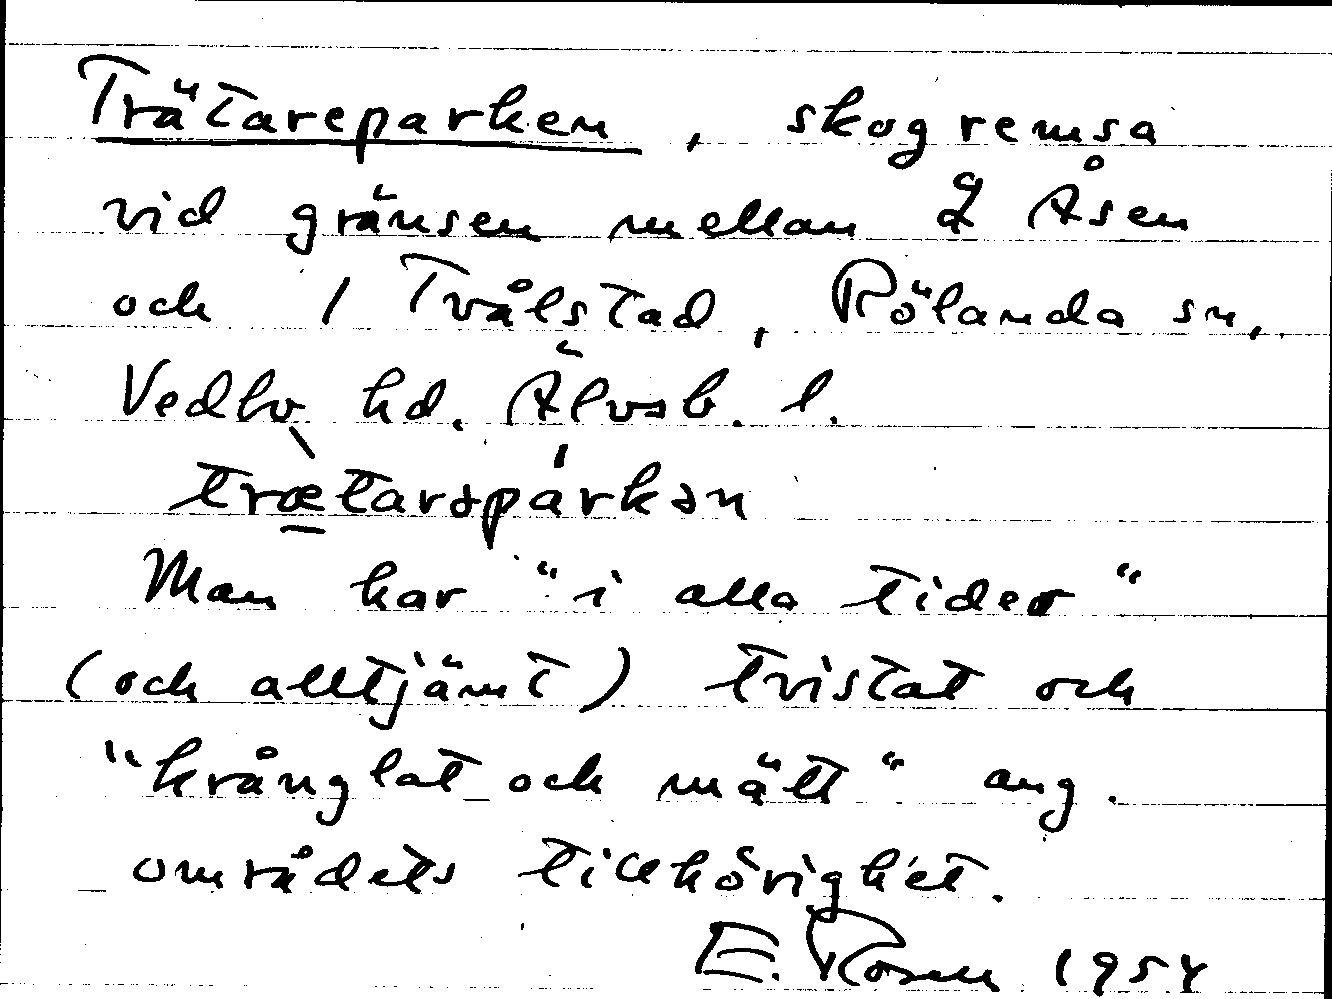 Trätareparken, skogremsa
vid gränsen mellan 2 Åsen
och 1 Tvålstad, Rölanda sn,
Vedbo hd. Älvsb. l.
træ̀tarəpárkən
Man har "i alla tider"
(och alltjämt) tvistat och
"krånglat och mätt" ang.
områdets tillhörighet.
E. Rosen 1954